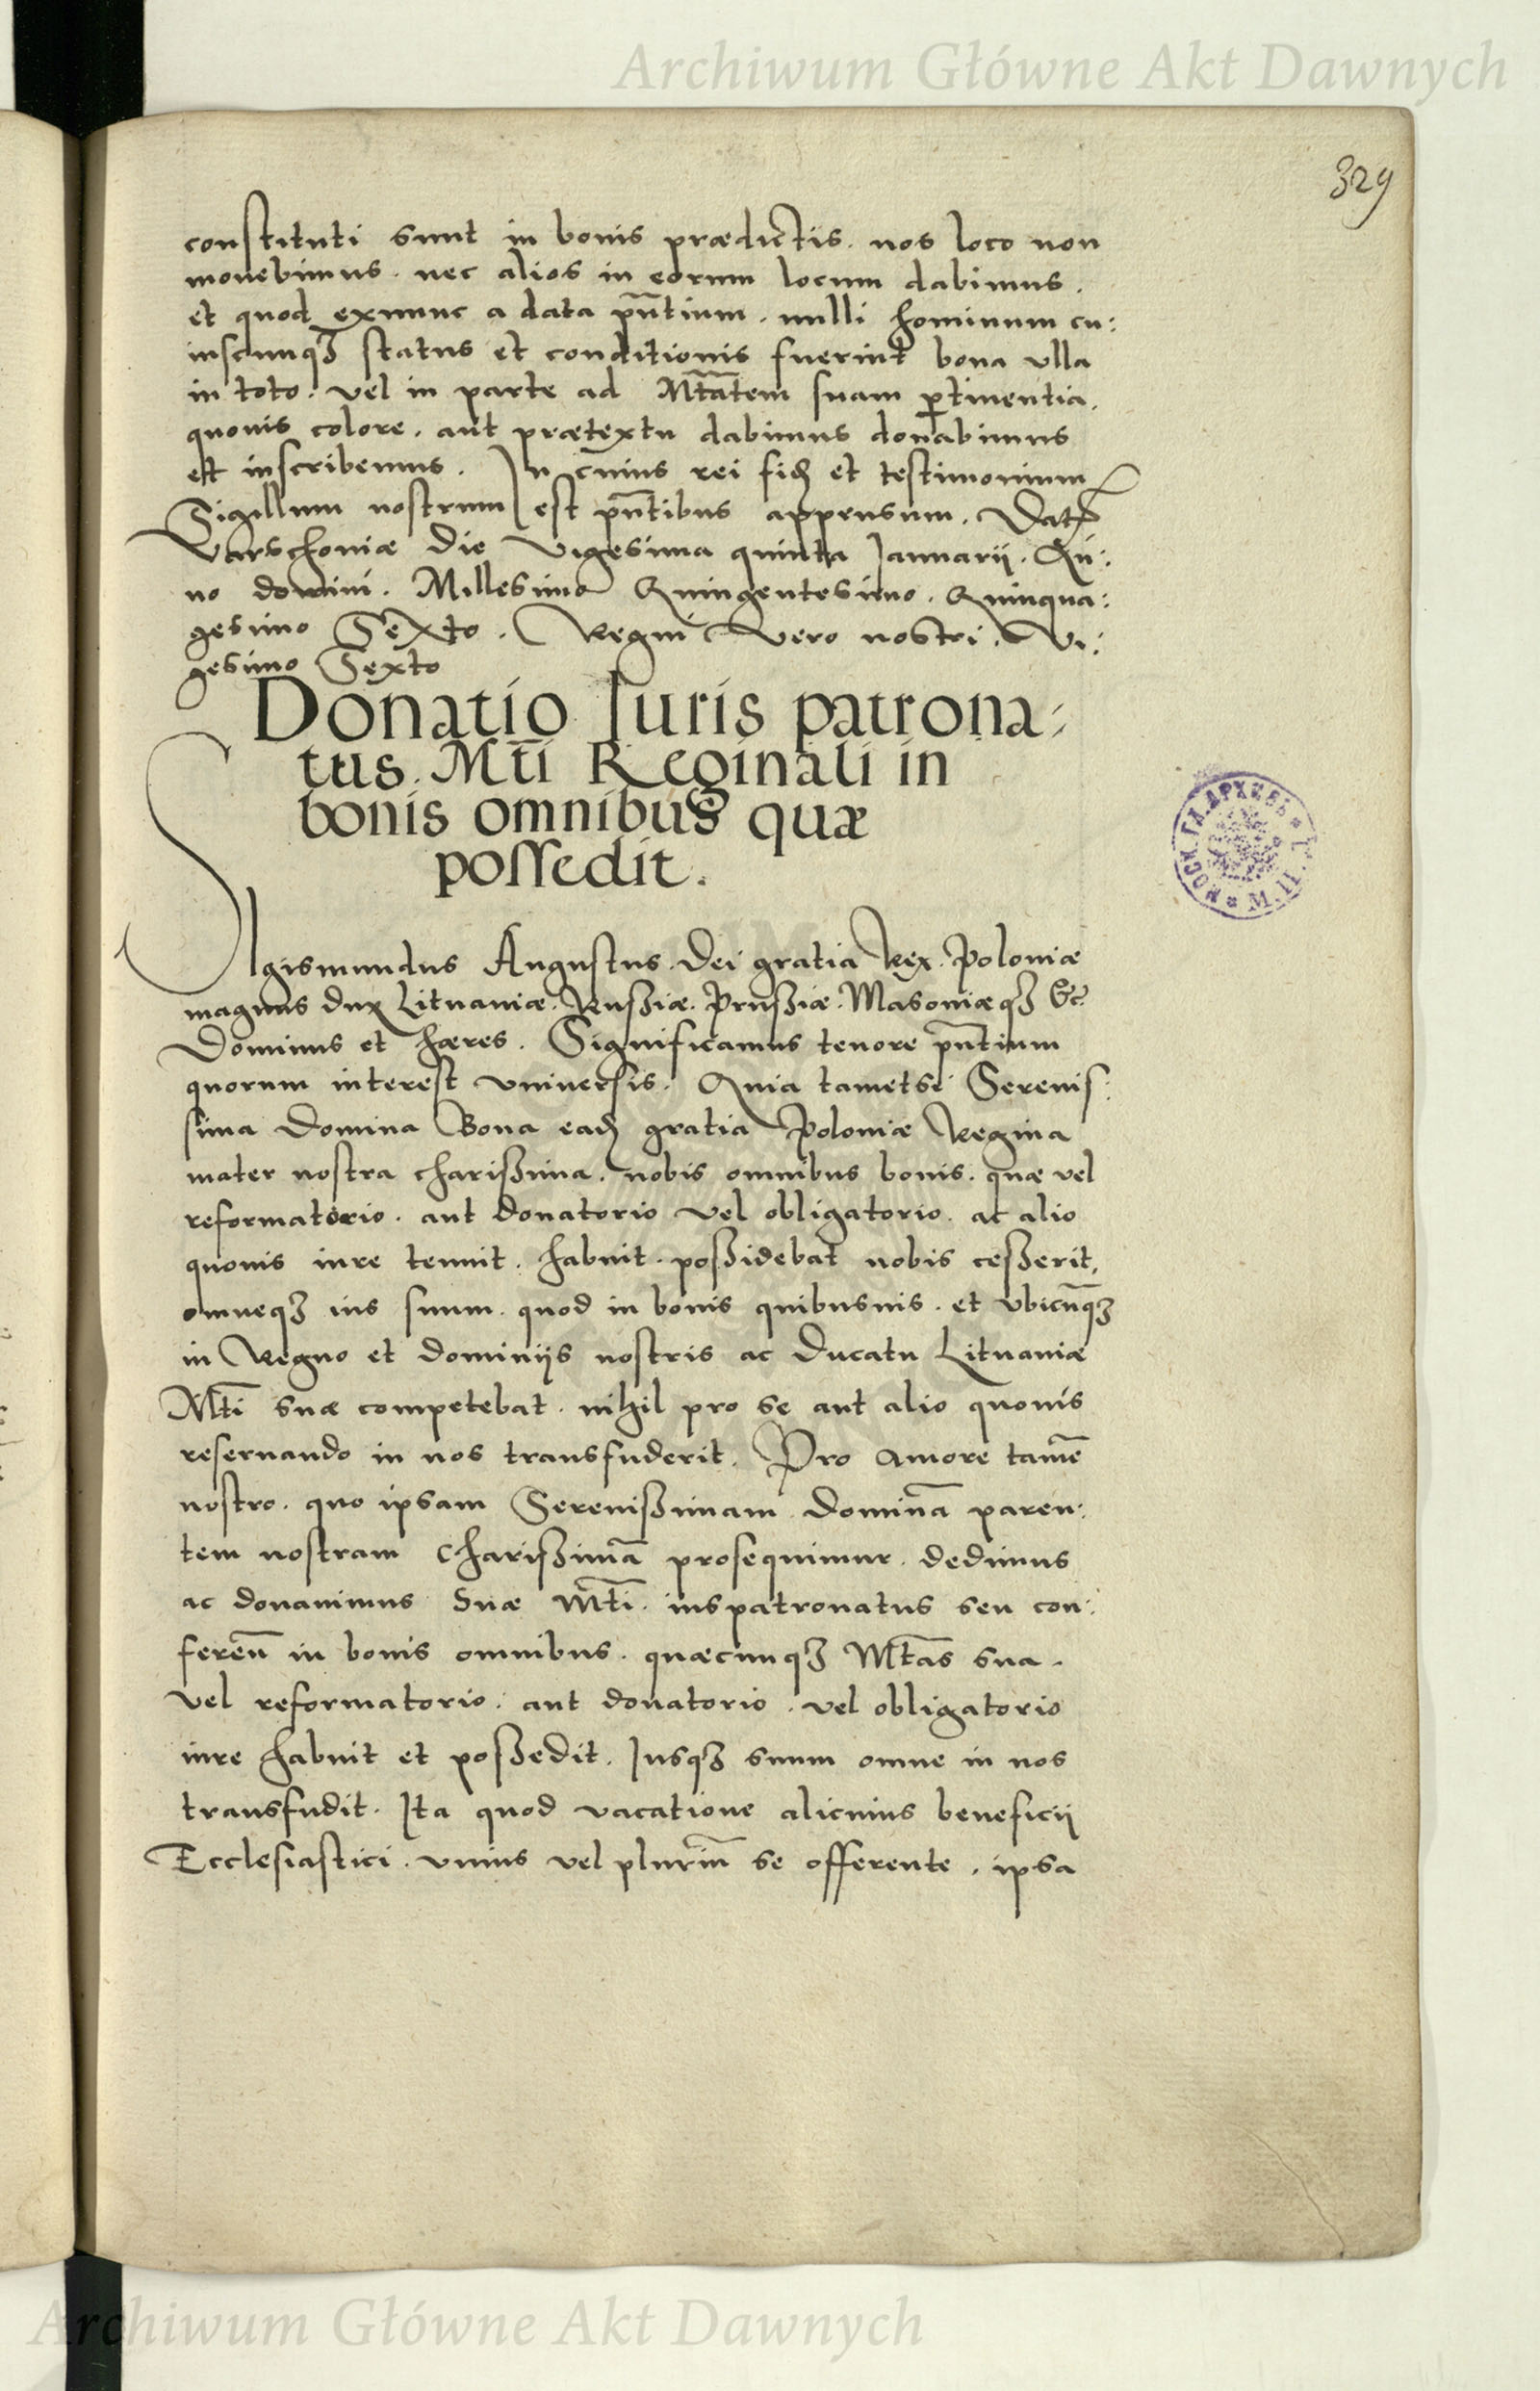 Archiwum Główne Akt Dawnych
329
constituti sunt in bonis prædictis. nos loco non
mouebimus. nec alios in eorum locum dabimus.
et quod exnunc a data pñtium. nulli hominum cu:
iuscunqꝫ status et conditionis fuerint bona vlla
in toto. vel in parte ad Mtãtem suam ꝑtinentia.
quouis colore. aut prætextu dabimus donabimus
et inscribemus. In cuius rei fidẽ et testimonium
Sigillum nostrum est pñtibus appensum. Dat
Varschouiæ die Vigesima quinta Ianuarii. An:
no domini. Millesimo Quingentesimo. Quinqua:
gesimo Sexto. Regni vero nostri. Vi:
gesimo Sexto
Donatio Iuris patrona:
tus. Mti Reginali in
bonis omnibus quæ
possedit.
Sigismundus Augustus. Dei gratia Rex. Poloniæ
magnus dux Lituaniæ. Russiæ. Prussiæ. Masouiæqꝫ &c
Dominus et hæres. Significamus tenore pñtium
quorum interest vniuersis. Quia tametsi Serenis:
sima Domina Bona eadẽ gratia Poloniæ Regina
mater nostra charissima. nobis omnibus bonis. quæ vel
reformatorio. aut donatorio vel obligatorio. ac alio
quouis iure tenuit. habuit. possidebat nobis cesserit,
omneqꝫ ius suum. quod in bonis quibusuis. et vbicũqꝫ
in Regno et dominijs nostris ac Ducatu Lituaniæ
Mti suæ competebat. nihil pro se aut alio quouis
reseruando in nos transfuderit. Pro amore tamẽ
nostro. quo ipsam Serenissimam Dominã paren:
tem nostram charissimã prosequimur. dedimus
ac donauimus Suæ Mti. iuspatronatus seu con:
ferẽn in bonis omnibus. quæcunqꝫ Mtãs sua.
vel reformatorio. aut donatorio. vel obligatorio
iure habuit et possedit. Iusqꝫ suum omne in nos
transfudit. Ita quod vacatione alicuius beneficii
Ecclesiastici. vnius vel pluriũ se offerente. ipsa
МОСК. ГЛ. АРХИВЪ * М. И. Д. *
Archiwum Główne Akt Dawnych